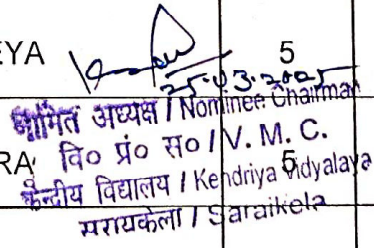 EYA 5
25.03.2025
नामित अध्यक्ष / Nominee Chairman
RA वि० प्रं० स० / V. M. C. 5
केन्द्रीय विद्यालय / Kendriya Vidyalaya
सरायकेला / Saraikela